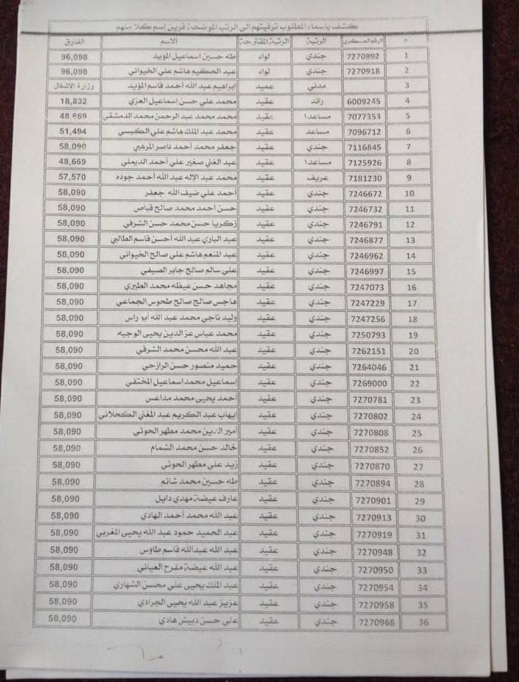 كشف باسماء المطلوب ترقيتهم الى الرتب الموضحة قرين إسم كلا منهم
م الرقم العسكري الرتبة الرتبة المقترحة الاسم الفارق
1 7270892 جندي لواء طه حسين اسماعيل المؤيد 96,098
2 7270918 جندي لواء عبد الحكيم هاشم علي الخيواني 96,098
3 مدني عميد ابراهيم عبد الله أحمد قاسم المؤيد وزارة الاشغال
4 6009245 رائد عقيد محمد علي حسن إسماعيل العزي 18,832
5 7077353 مساعد1 عقيد محمد محمد عبد الرحمن محمد الدمشقي 48,669
6 7096712 مساعد عقيد محمد عبد الملك هاشم علي الكبسي 51,494
7 7116845 جندي عقيد جعفر محمد أحمد ناصر المرهبي 58,090
8 7125926 مساعد1 عقيد عبد الغني صغير علي أحمد الديملي 48,669
9 7181230 عريف عقيد محمد عبد الإله عبد الله أحمد جوده 57,570
10 7246672 جندي عقيد أحمد علي ضيف الله جعفر 58,090
11 7246732 جندي عقيد حسن أحمد محمد صالح قباص 58,090
12 7246791 جندي عقيد زكريا حسن محمد حسن الشرفي 58,090
13 7246877 جندي عقيد عبد الباري عبد الله أحسن قاسم الطالبي 58,090
14 7246962 جندي عقيد عبد المنعم هاشم علي صالح الخيواني 58,090
15 7246997 جندي عقيد علي سالم صالح جابر الصيفي 58,090
16 7247073 جندي عقيد مجاهد حسن عيظه محمد الطيري 58,090
17 7247229 جندي عقيد هاجس صالح صالح طحوس الجماعي 58,090
18 7247256 جندي عقيد وليد ناجي محمد عبد الله أبو راس 58,090
19 7250793 جندي عقيد محمد عباس عز الدين يحيى الوجيه 58,090
20 7262151 جندي عقيد عبد الله محسن محمد الشرفي 58,090
21 7264046 جندي عقيد حميد منصور حسن الرازحي 58,090
22 7269000 جندي عقيد اسماعيل محمد اسماعيل المختفي 58,090
23 7270781 جندي عقيد أحمد يحيى محمد مداعس 58,090
24 7270802 جندي عقيد إيهاب عبد الكريم عبد المغني الكحلاني 58,090
25 7270808 جندي عقيد أمير الدين محمد مطهر الحوثي 58,090
26 7270852 جندي عقيد خالد حسن محمد الشمام 58,090
27 7270870 جندي عقيد زيد علي مطهر الحوثي 58,090
28 7270894 جندي عقيد طه حسين محمد شائم 58,090
29 7270901 جندي عقيد عارف عيضة مهدي دايل 58,090
30 7270913 جندي عقيد عبد الله محمد أحمد الهادي 58,090
31 7270919 جندي عقيد عبد الحميد حمود عبد الله يحيى المغربي 58,090
32 7270948 جندي عقيد عبد الله عبدالله قاسم طاوس 58,090
33 7270950 جندي عقيد عبد الله عيضة مفرح العياني 58,090
34 7270954 جندي عقيد عبد الملك يحيى علي محسن الشهاري 58,090
35 7270958 جندي عقيد عزيز عبد الله يحيى الجرادي 58,090
36 7270968 جندي عقيد علي حسن دبيش هادي 58,090